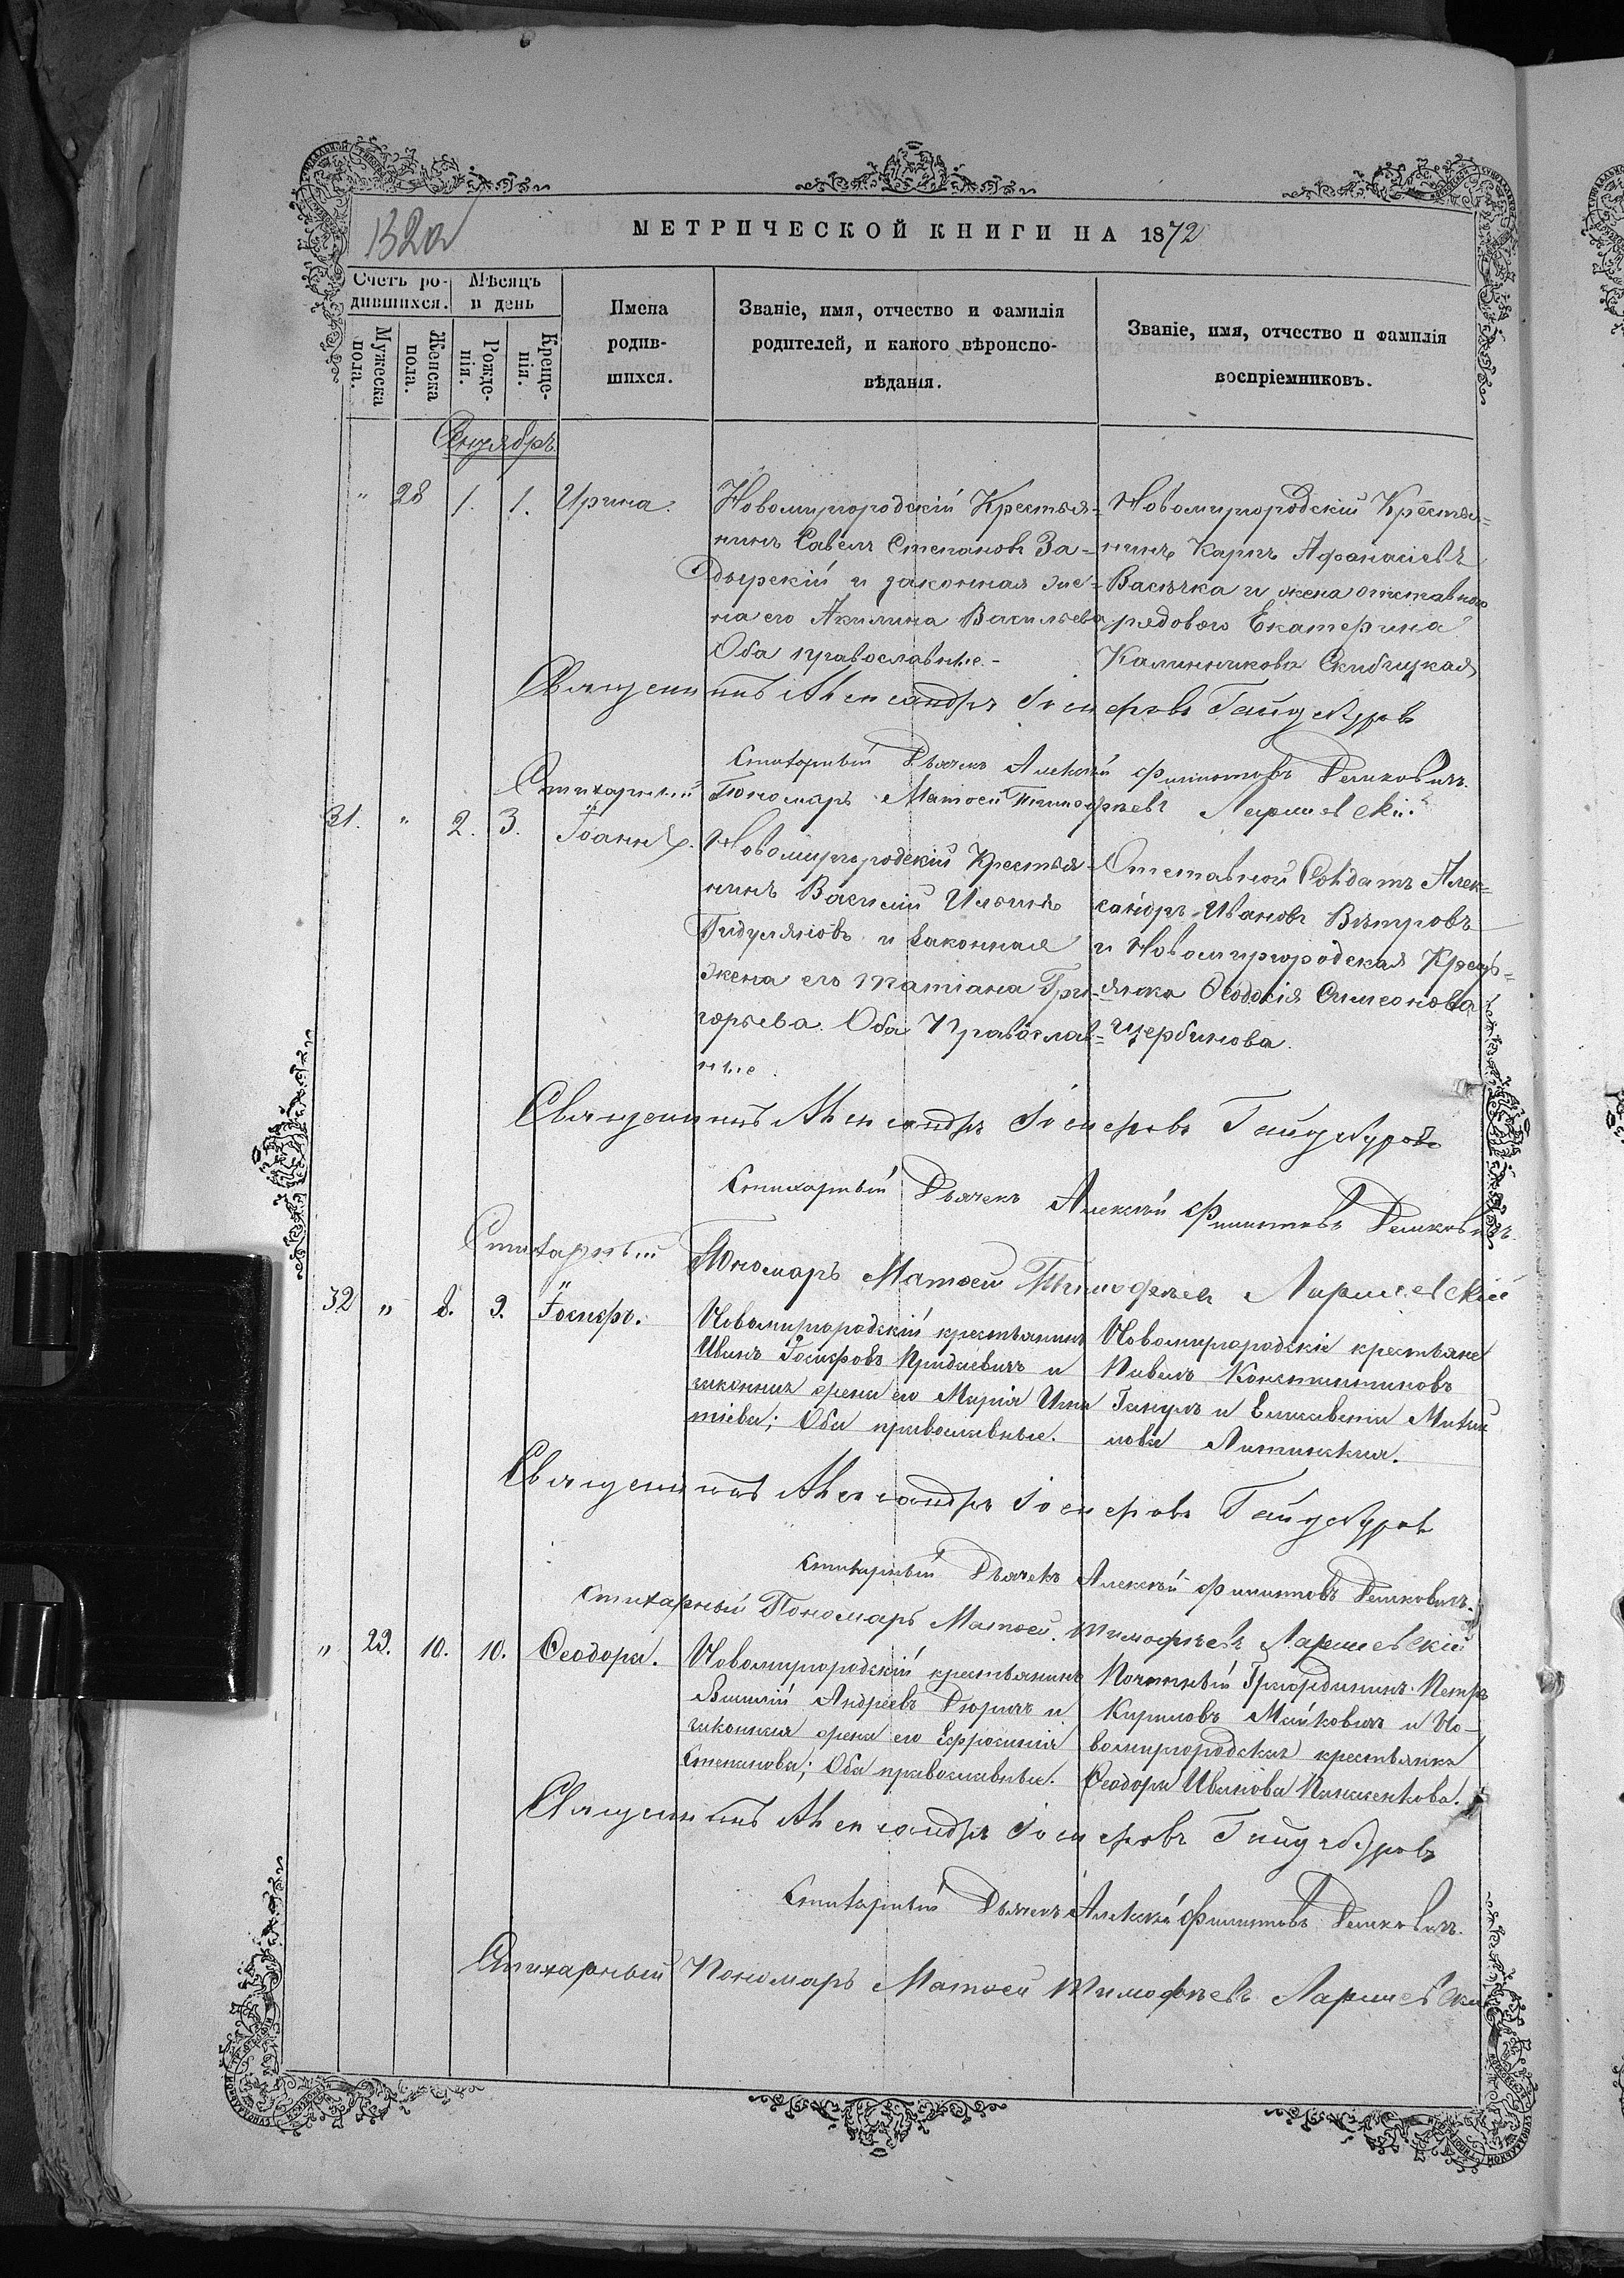 132 об
МЕТРИЧЕСКОЙ КНИГИ НА 1872
Счетъ ро-
дившихся.
Мѣсяцъ
и день
Мужеска
пола.
Женска
пола.
Рожде-
нія.
Креще-
нія.
Имена
родив-
шихся.
Званіе, имя, отчество и фамилія
родителей, и какого вѣроиспо-
вѣданія.
Званіе, имя, отчество и фамилія
воспріемниковъ.
Сентябрь
" 28 1. 1. Ирина.
Новомиргородскій Крестья-
нинъ Савелъ Степановъ За-
дырскій и законная же-
на его Акилина Васильева
Оба православные.-
Новомиргородскій Крестья-
нинъ Карпъ Афанасіевъ
Васѣчка и жена отставного
рядового Екатерина
Калинникова Скибицкая
Священникъ Александръ Іосифовъ Гайдебуровъ
Стихарный Дьячекъ Алексѣй Филиповъ Демковичъ.
Стихарный Пономарь Матѳей Тимофѣевъ Ляришевскій.
31. " 2. 3. Іоаннъ.
Новомиргородскій Крестья-
нинъ Василій Ильинъ
Гидуляновъ и законная
жена его Татіана Гри-
горьева. Оба Православ-
ные.
Отставной Солдатъ Алек-
сандръ Ивановъ Вѣтровъ
и Новомиргородская Кресть-
янка Ѳеодосія Симеонова
Щербинова.
Священникъ Александръ Іосифовъ Гайдебуровъ
Стихарный Дьячекъ Алексѣй Филиповъ Демковичъ.
Стихарный Пономарь Матѳей Тимофѣевъ Ляришевскій
32 " 8. 9. Іосифъ.
Новомиргородскій крестьянинъ
Иванъ Іосифовъ Придаевичъ и
законная жена его Марія Игна
тіева; Оба православные.
Новомиргородскіе крестьяне
Павелъ Константиновъ
Ганулъ и Елисавета Михай
лова Литинская.
Священникъ Александръ Іосифовъ Гайдебуровъ
Стихарный Дьячекъ Алексѣй Филиповъ Демковичъ.
Стихарный Пономарь Матѳей Тимофѣевъ Ляришевскій
" 29. 10. 10. Ѳеодора.
Новомиргородскій крестьянинъ
Василій Андреевъ Дюричъ и
законная жена его Ефросинія
Степанова; Оба православные.
Почетный Гражданинъ Петръ
Кириловъ Майковичъ и Но-
вомиргородская крестьянка
Ѳеодора Иванова Панасенкова.
Священникъ Александръ Іосифовъ Гайдебуровъ
Стихарный Дьячекъ Алексѣй Филиповъ Демковичъ.
Стихарный Пономарь Матѳей Тимофѣевъ Ляришевскій